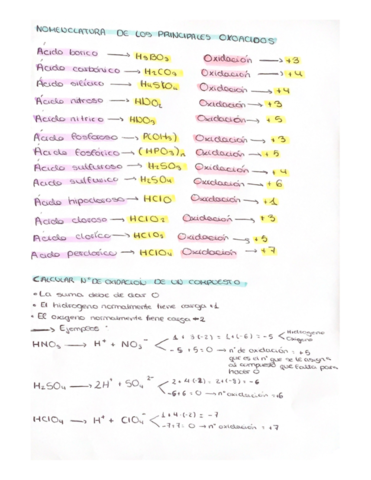 NOMENCLATURA DE LOS PRINCIPALES OXOÁCIDOS:
Ácido bórico → H3BO3 Oxidación → +3
Ácido carbónico → H2CO3 Oxidación → +4
Ácido silícico → H4SiO4 Oxidación → +4
Ácido nitroso → HNO2 Oxidación → +3
Ácido nítrico → HNO3 Oxidación → +5
Ácido fosforoso → P(OH3) Oxidación → +3
Ácido fosfórico → (HPO3)n Oxidación → +5
Ácido sulfuroso → H2SO3 Oxidación → +4
Ácido sulfúrico → H2SO4 Oxidación → +6
Ácido hipocloroso → HClO Oxidación → +1
Ácido cloroso → HClO2 Oxidación → +3
Ácido clorico → HClO3 Oxidación → +5
Ácido perclórico → HClO4 Oxidación → +7
CALCULAR Nº DE OXIDACIÓN DE UN COMPUESTO:
• La suma debe de dar 0
• El hidrógeno normalmente tiene carga +1
• El oxígeno normalmente tiene carga -2
→ Ejemplos:
HNO3 → H+ + NO3- 1+3·(-2) = 1+(-6) = -5 Hidrógeno Oxígeno
-5+5=0 → nº de oxidación = +5
que es el nº que se le asigna
al compuesto que falta para
hacer 0
H2SO4 → 2H+ + SO4 2- 2+4·(-2) = 2+(-8) = -6
-6+6=0 → nº oxidación = +6
HClO4 → H+ + ClO4- 1+4·(-2) = -7
-7+7=0 → nº oxidación = +7